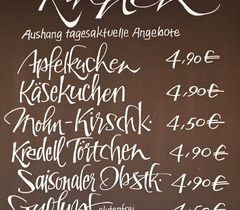 Kuchen
Aushang tagesaktuelle Angebote
Apfelkuchen 4,90€
Käsekuchen 4,90€
Mohn-Kirschk. 4,50€
Kredell Törtchen 4,90€
Saisonaler Obstk. 4,90€
glutenfrei